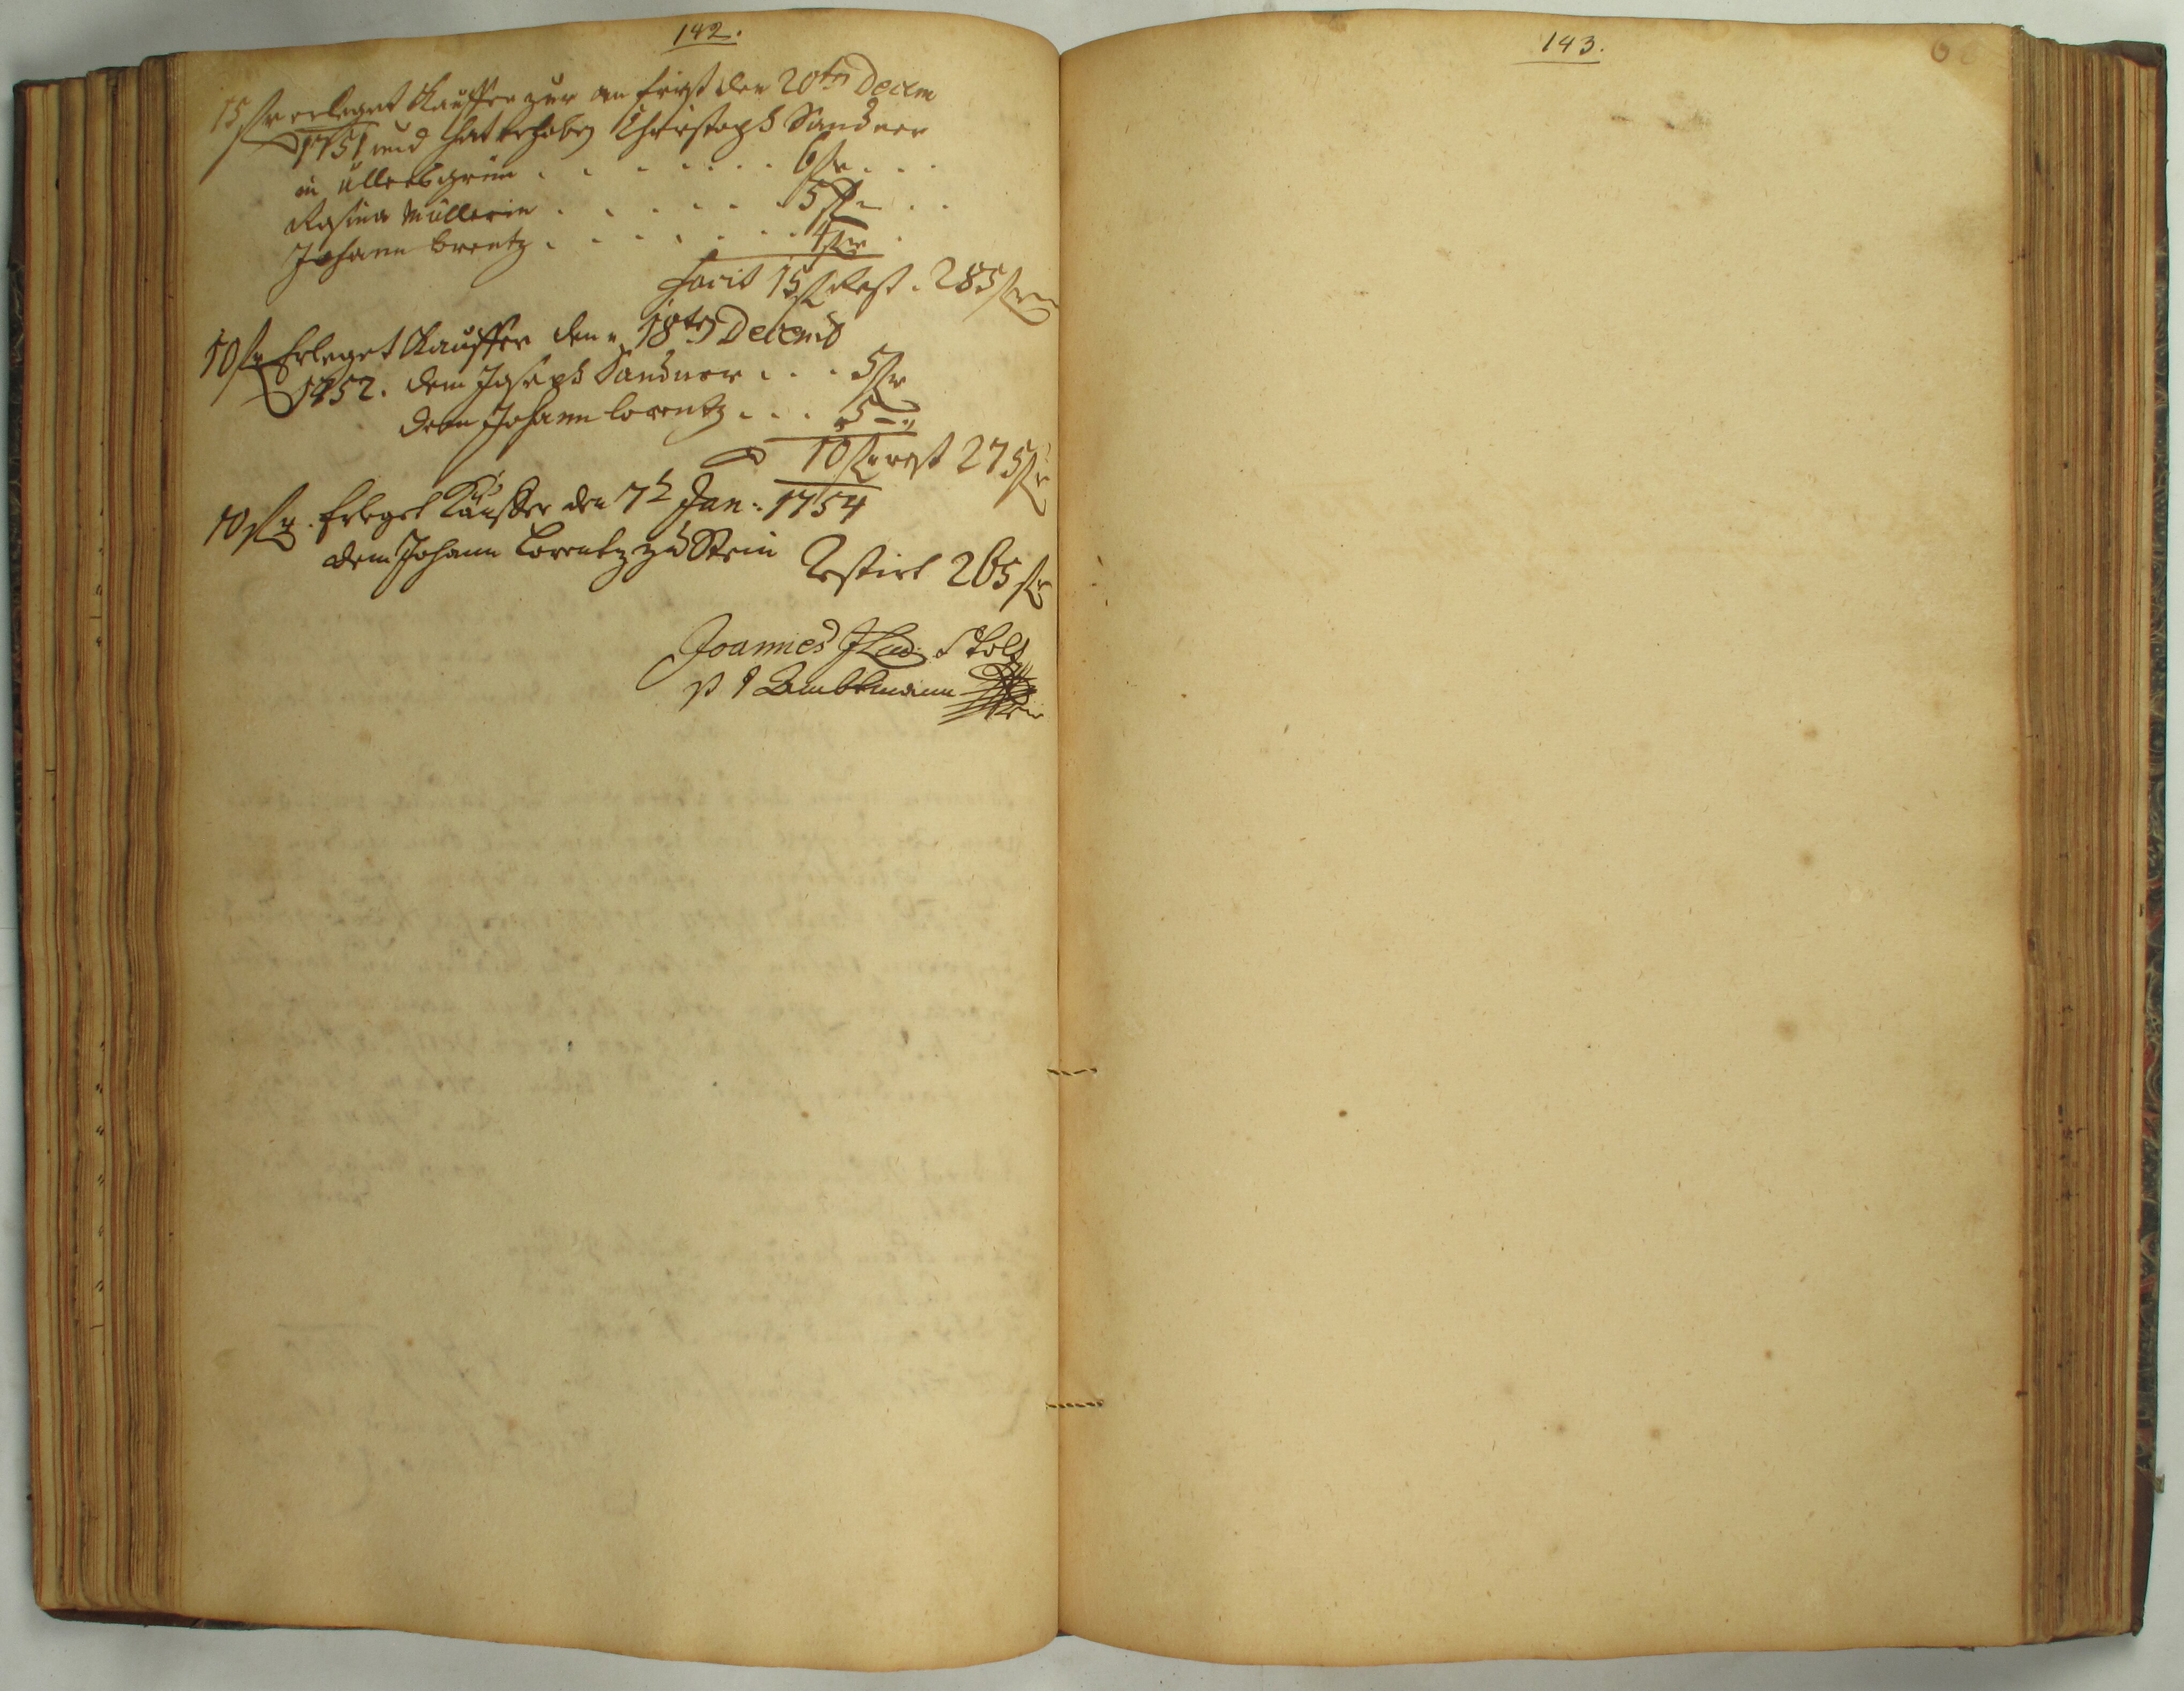 142.
15 fl erleget Kauffer zur an frist den 20ten Decem
1751 und hat erhoben Christoph Sandner
in Ullersgrün . . . . . . 6 fl . . .
Rosina Müllerin . . . . . . 5 fl . .
Johann Lorentz . . . . . . 4 fl .
facit 15 fl Rest . 285 fl
10 fl Erleget Kauffer den 18ten Decemb
1752. dem Joseph Sandner . . . 5 fl
dem Johann Lorentz . . . 5 -
10 fl rest 275 fl
10 fl . Erlegt Kauffer den 7t Jan: 1754
dem Johann Lorentz zu Stein
Restirt 265 fl
Joannes
p t Ambtmann
143.